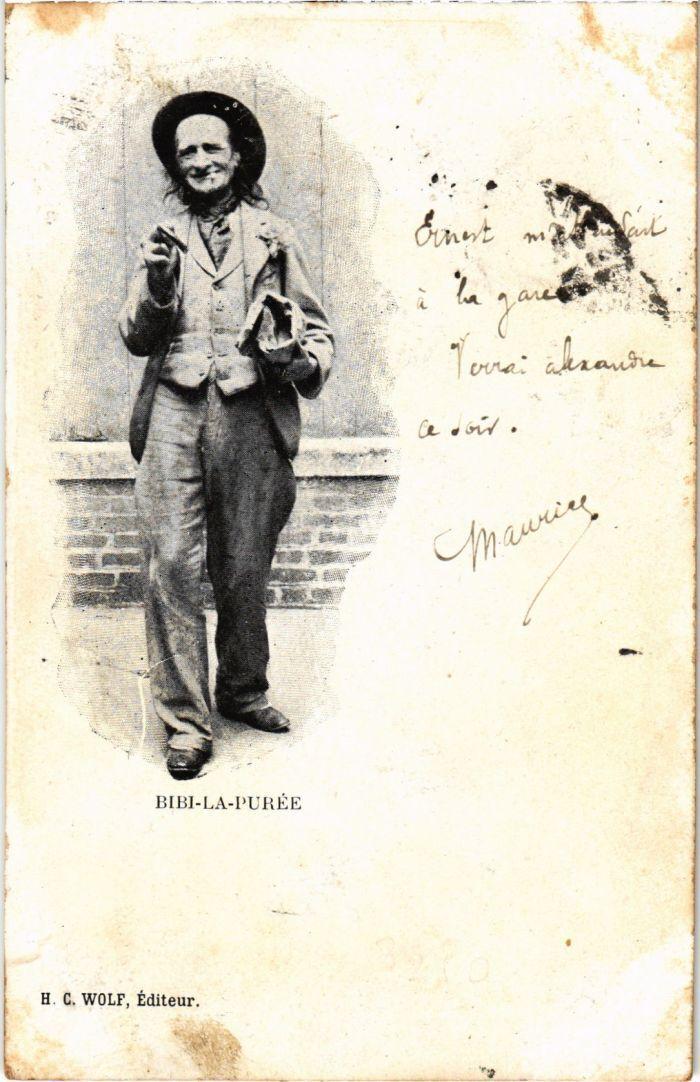 Ernest
à la gare
Verrai alexandre
ce soir.
Maurice
BIBI-LA-PURÉE
H. C. WOLF, Éditeur.